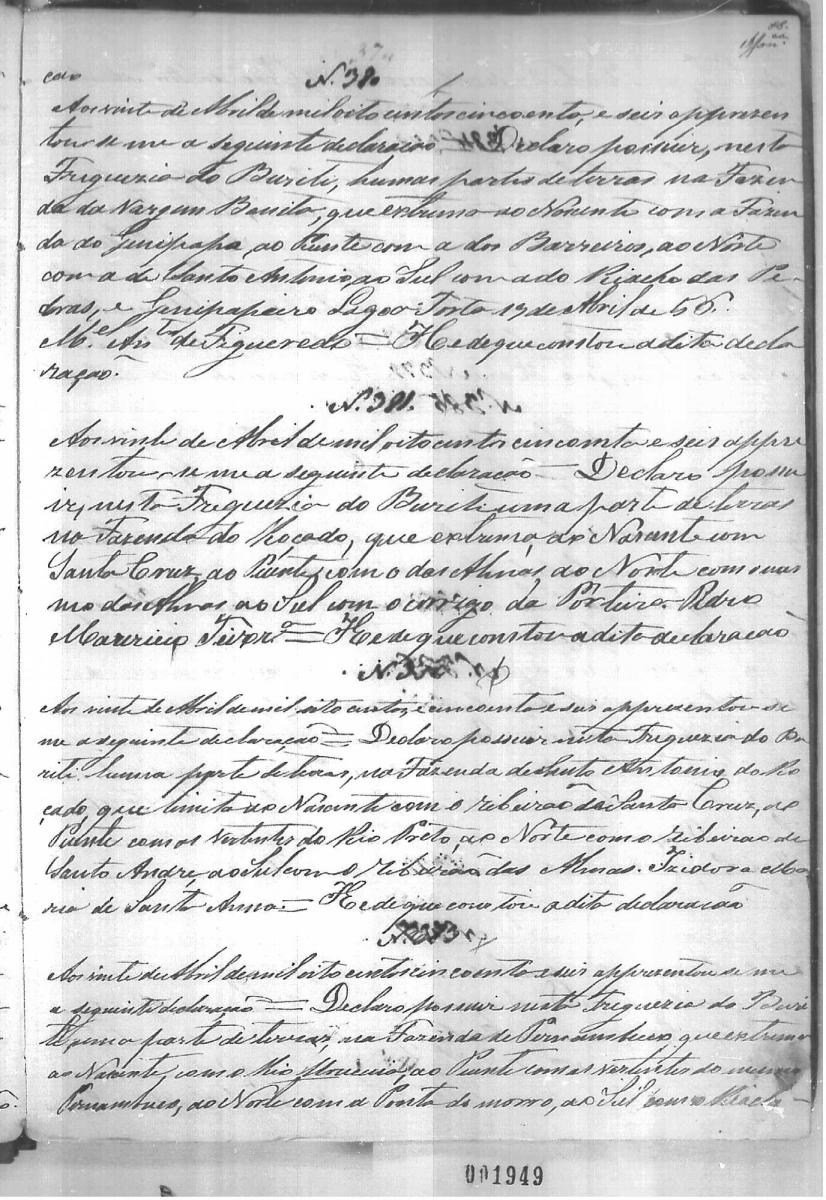 88.
cão
N. 380
Aos vinte de Abril de mil oito centos cincoenta, e seis apprezen
tou-se me a seguinte declaração = Declaro possuir, nesta
Freguezia do Buriti, humas partes de terras na Fazen
da da Vargem Bonita, que extrema ao Nascente com a Fazen
da do Genipapo, ao Puente com a dos Barreiros, ao Norte
com a de Santo Antonio ao Sul com a do Riacho das Pe
dras, e Genipapeiro Lagoa Torta 17 de Abril de 56.
M.el Ant.o de Figueredo = He de que constou a dita decla
ração.
N. 381.
Aos vinte de Abril de mil oito centos cincoenta e seis appre
zentou-se me a seguinte declaração = Declaro possu
ir, nesta Freguezia do Buriti uma parte de terras
na Fazenda do Roçado, que extrema, ao Nascente com
Santa Cruz, ao Puente, com o das Almas, ao Norte com o
mo das Almas ao Sul com o corrigo da Porteira. Pedro
Mauricio = He de que constou a dita declaração
N. 382.
Aos vinte de Abril de mil oito centos, e cincoenta e seis appresentou-se
me a seguinte declaração = Declaro possuir nesta Freguezia do Bu
riti huma parte de terras, na Fazenda de Santo Antonio do Ro
çado, que limita ao Nascente com o ribeirão da Santa Cruz, ao
Puente com as vertentes do Rio Preto, ao Norte com o ribeirão de
Santo André, ao Sul com o ribeirão das Almas. Izidora Ma
ria de Santa Anna = He de que constou a dita declaração
N. 383
Aos vinte de Abril de mil oito centos cincoenta e seis appresentou-se me
a seguinte declaração = Declaro possuir nesta Freguezia do Buri
ti, uma parte de terras, na Fazenda de Pernambuco, que extrema
ao Nascente, com o Rio ao Puente com as vertentes do mesmo
Pernambuco, ao Norte com a Ponta do morro, ao Sul com o Riacho
001949